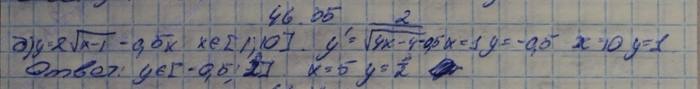 46.35
б) y=2√x-1 -0,5x x∈[1;10]. y'= 2/√4x-4 -0,5 x=1 y=-0,5 x=10 y=1
Ответ: y∈[-0,5; 2] x=5 y=2